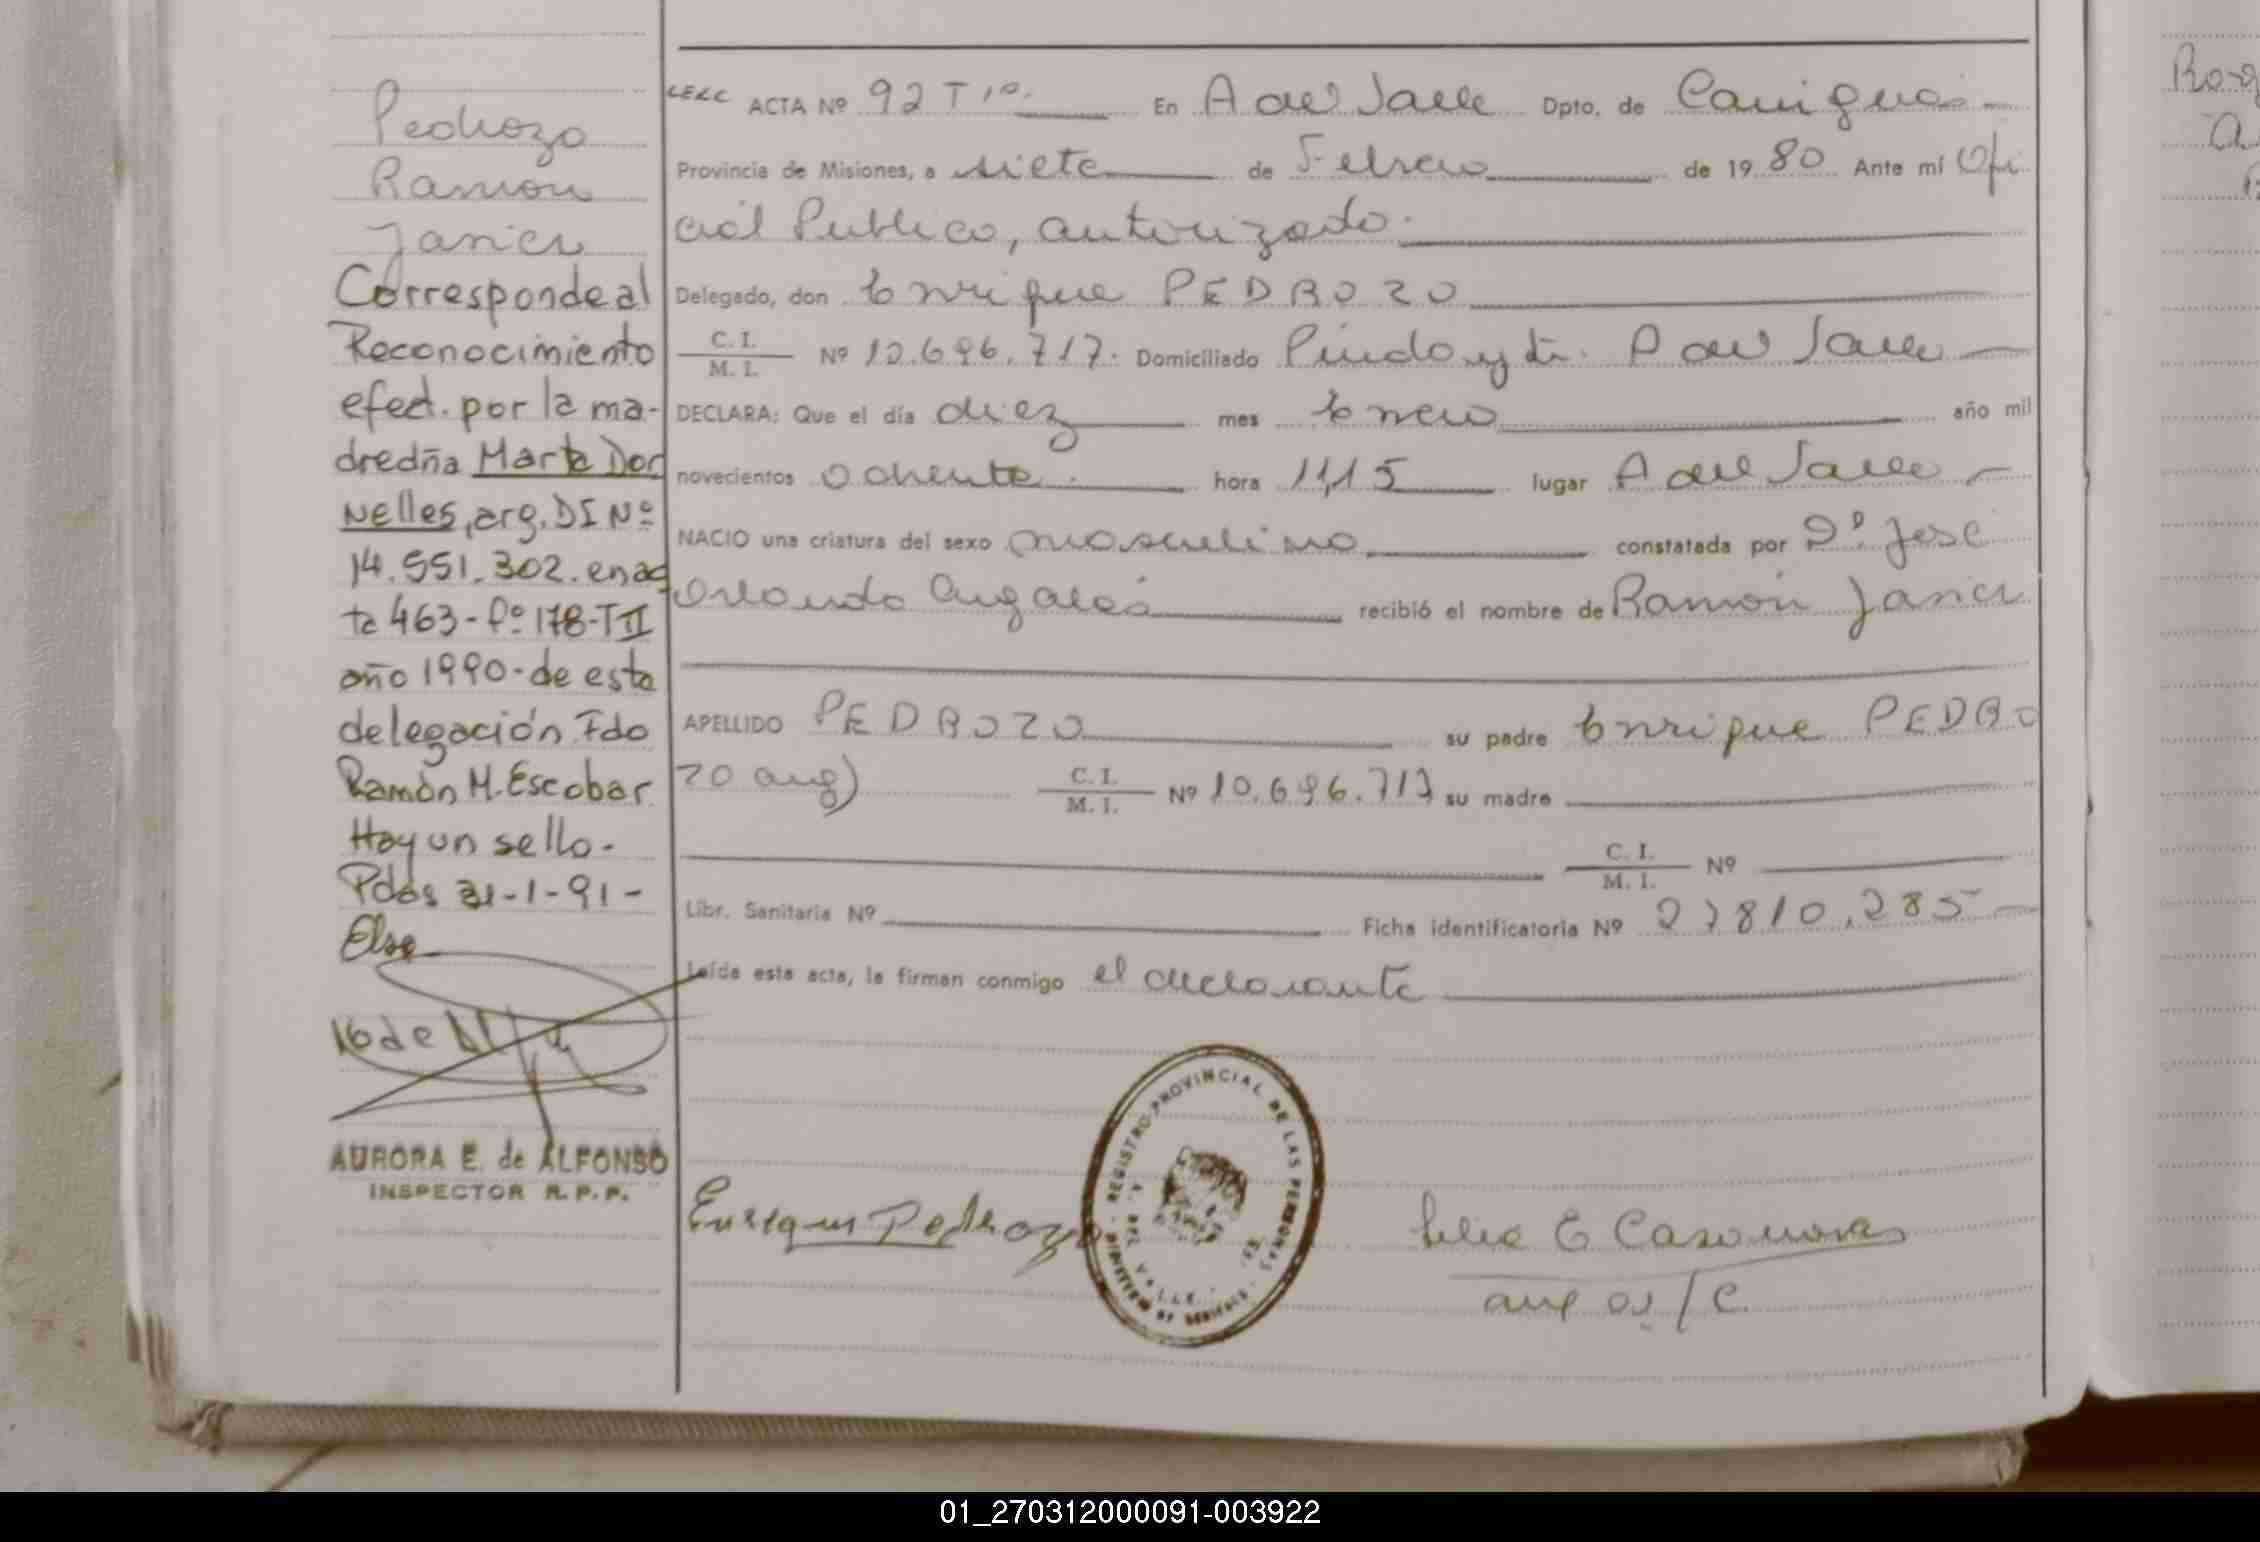 Pedrozo
Ramon
Javier
Corresponde al
Reconocimiento
efect. por la ma-
dre dña Marta Dor
nelles, arg. DI Nº
14.551.302. en ac
ta 463 - fº 178 - T II
año 1990 - de esta
delegación Fdo
Ramón M. Escobar
Hay un sello -
Pdas 31-1-91 -
16 de
AURORA E. de ALFONSO
INSPECTOR R.P.P.
ACTA Nº 92 T 1º. En A del Valle Dpto. de Cainguás
Provincia de Misiones, a siete de Febrero de 19 80 Ante mí Ofi
cial Publico, autorizado.
Delegado, don Enrique PEDROZO
C. I. / M. I. Nº 10.696.717. Domiciliado Pindayti. A del Valle
DECLARA: Que el día diez mes Enero año mil
novecientos ochenta. hora 11,15 lugar A del Valle
NACIO una criatura del sexo masculino constatada por Dº. José
Orlando recibió el nombre de Ramón Javier
APELLIDO PEDROZO su padre Enrique PEDRO
ZO arg) C. I. / M. I. Nº 10.696.717 su madre
C. I. / M. I. Nº
Libr. Sanitaria Nº Ficha identificatoria Nº 27810.285
Leída esta acta, la firman conmigo el declarante
REGISTRO PROVINCIAL DE LAS PERSONAS
A. DEL VALLE
Enrique Pedrozo
E Casanovas
01_270312000091-003922